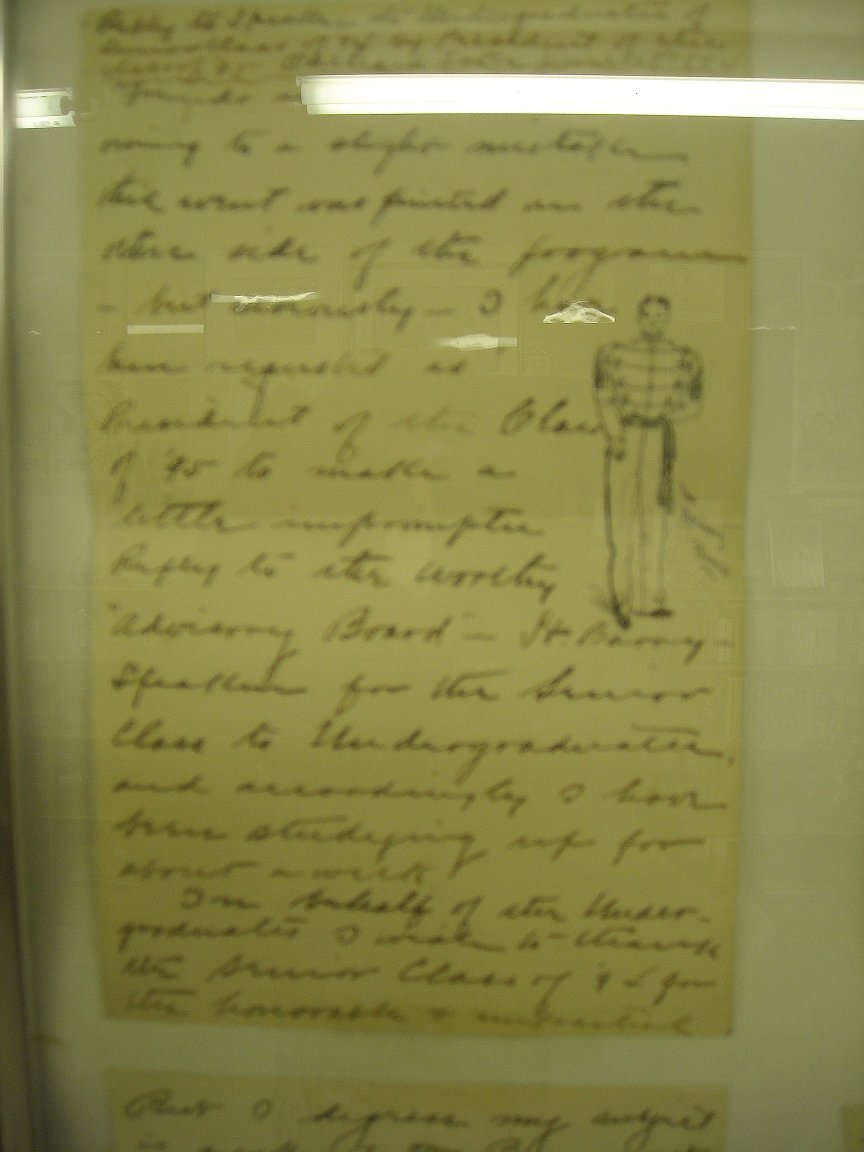 Reply to Speaker to Undergraduates of
Senior Class of '94 by President of the
Class of '95
"Friends
owing to a slight mistake
this event was printed on the
other side of the programme
- but seriously - I have
been requested as
President of the Class
of '95 to make a
little impromptu
Reply to the worthy
"Advisory Board" - Mr. Barry -
Speaker for the Senior
Class to Undergraduates,
and accordingly I have
been studying up for
about a week!
In behalf of the Under-
graduates I wish to thank
the Senior Class of '94 for
the honorable &
But I digress my subject
is